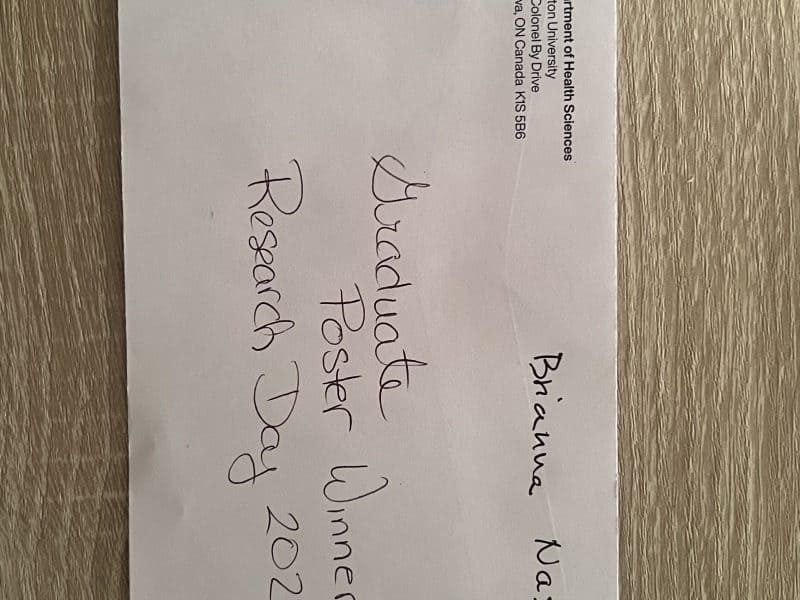 rtment of Health Sciences
ton University
Colonel By Drive
va, ON Canada K1S 5B6
Brianna Na
Graduate
Poster Winner
Research Day 202